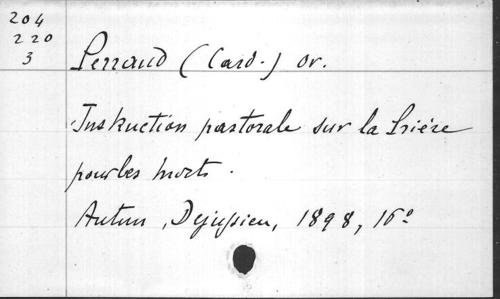 204
220
3
Perraud (Card.) or.
Instruction pastorale sur la Prière
pour les morts.
Autun, Dejussieu, 1898, 16º